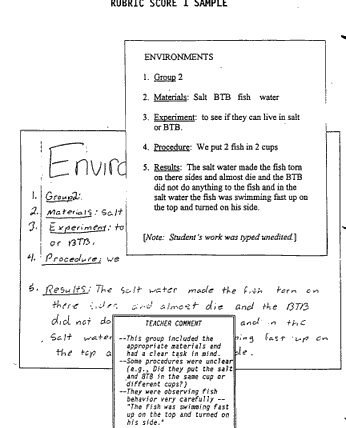 RUBRIC SCORE 1 SAMPLE
ENVIRONMENTS
1. Group 2
2. Materials: Salt BTB fish water
3. Experiment: to see if they can live in salt
or BTB.
4. Procedure: We put 2 fish in 2 cups
5. Results: The salt water made the fish torn
on there sides and almost die and the BTB
did not do anything to the fish and in the
salt water the fish was swimming fast up on
the top and turned on his side.
[Note: Student's work was typed unedited.]
Enviro
1. Group 2:
2. Materials: Salt
3. Experiment: to
or BTB.
4. Procedure: we
5. Results: The salt water made the fish torn on
there sides and almost die and the BTB
did not do and in the
Salt water ing fast up on
the top a de.
TEACHER COMMENT
--This group included the
appropriate materials and
had a clear task in mind.
--Some procedures were unclear
(e.g., Did they put the salt
and BTB in the same cup or
different cups?)
--They were observing fish
behavior very carefully --
"The fish was swimming fast
up on the top and turned on
his side."